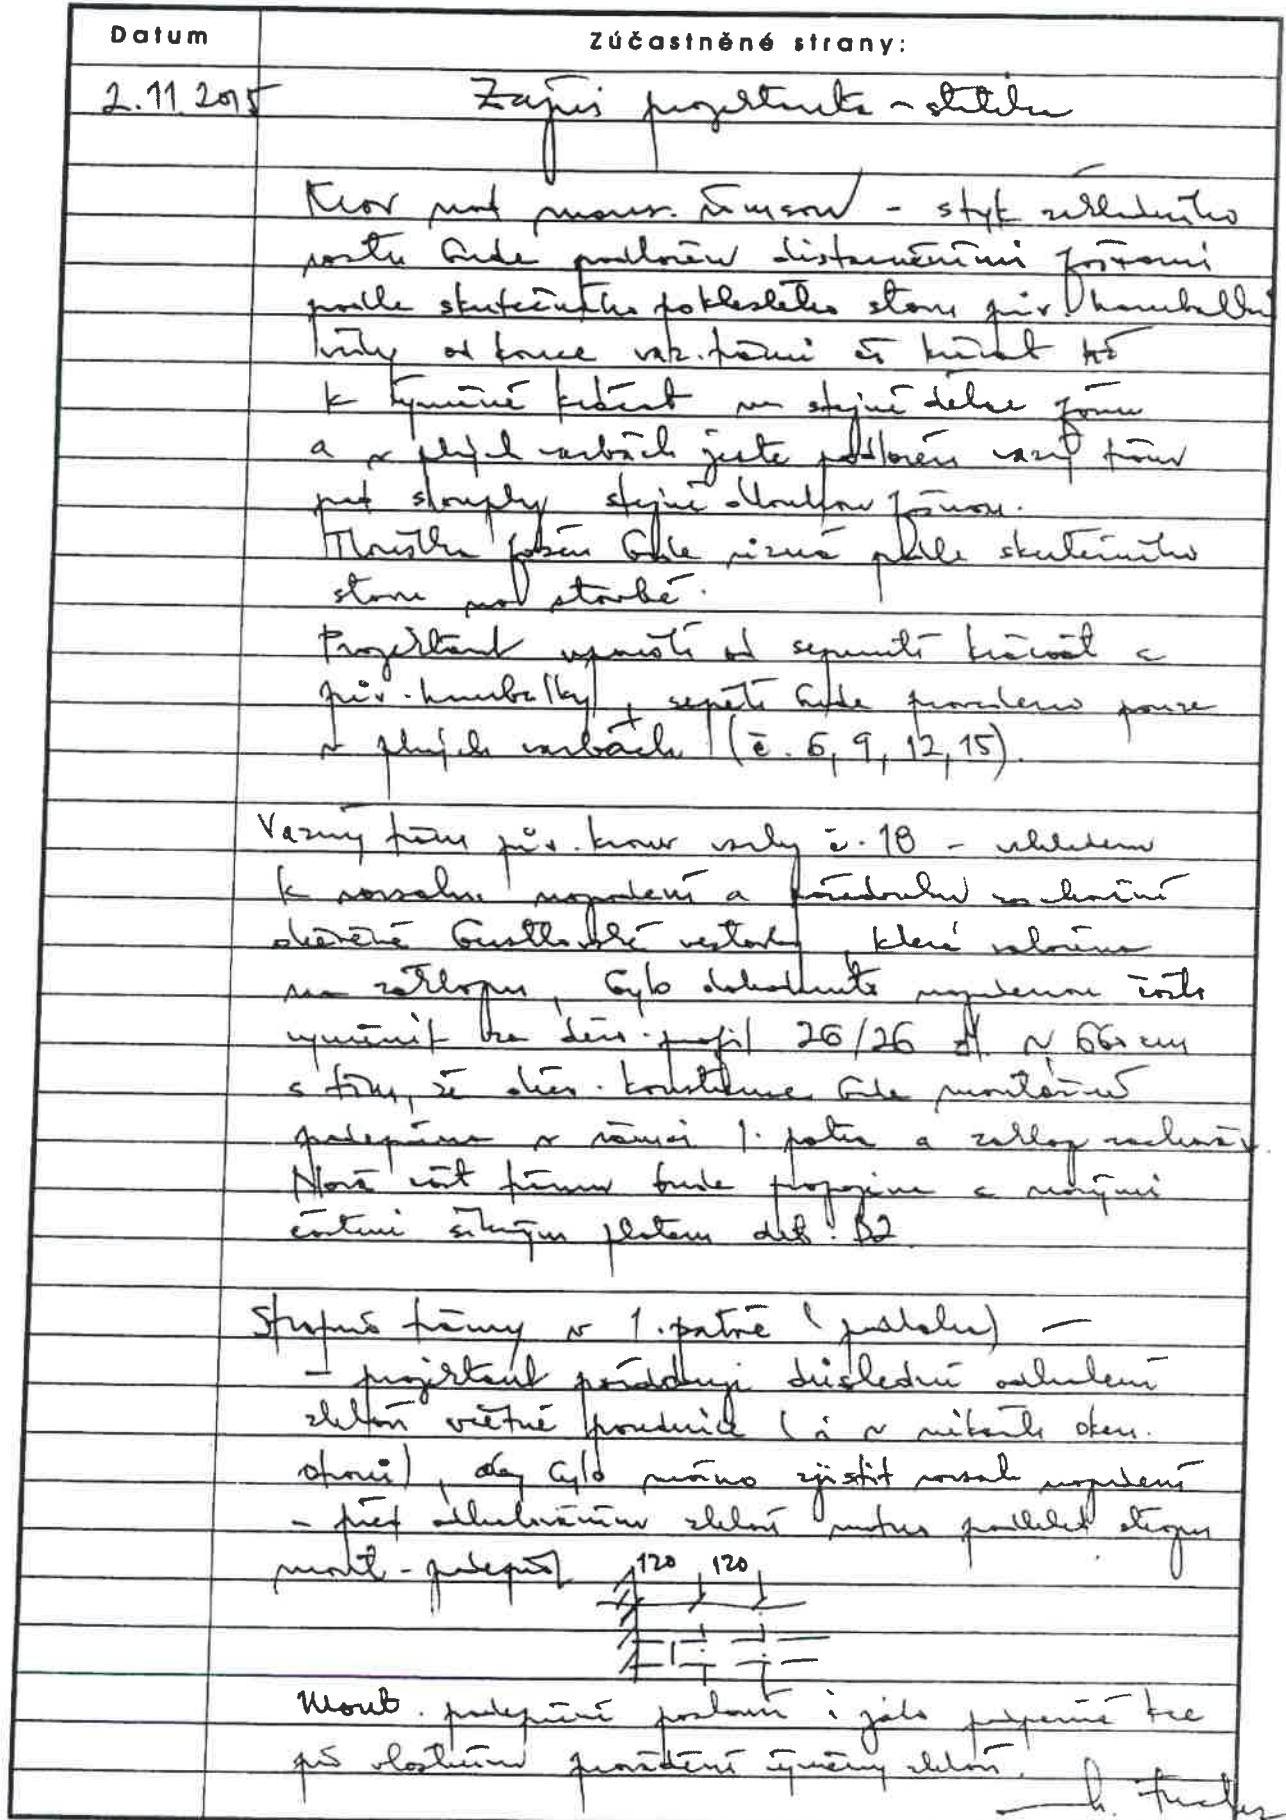 Datum
Zúčastněné strany:
2.11.2015
Zápis projektanta - statika
Krov nad mans. římsou - styk základního
roštu bude podložen distančními fošnami
podle skutečného pokleslého stavu pův. hambalku
vždy od konce vaz. trámu či krácat
k výměně krácat na stejné délce
a v plných vazbách ještě podložen vazný trám
pod sloupky stejně dlouhou fošnou.
Tloušťka fošen bude různá podle skutečného
stavu na stavbě.
Projektant upouští od sepnutí kráčat a
pův. hambalky, sepětí bude provedeno pouze
v plných vazbách (č. 6, 9, 12, 15).
Vazný trám pův. krovu vazby č. 18 - vzhledem
k rozsahu napadení a požadavku zachování
dřevěné vestavby, která
na záklopu, bylo dohodnuto napadenou část
vyměnit za dřev. profil 26/26 dl. ~ 660 cm
s tím, že dřev. konstrukce bude montážně
podepřena v rámci 1. patra a záklop zachován.
Nová část trámu bude propojena s
částmi šikmým plátem det. B2
Stropní trámy v 1. patře (podlaha) -
- projektant požaduje důsledné odhalení
zhlaví včetně pozednice (i v nikách oken.
otvorů), aby bylo možno zjistit rozsah napadení
- před odhalováním zhlaví nutno podhled stropu
mont. podepřít
120 120
Mont. podepření poslouží i jako podpěrná kce
při vlastním provádění výměny zhlaví.